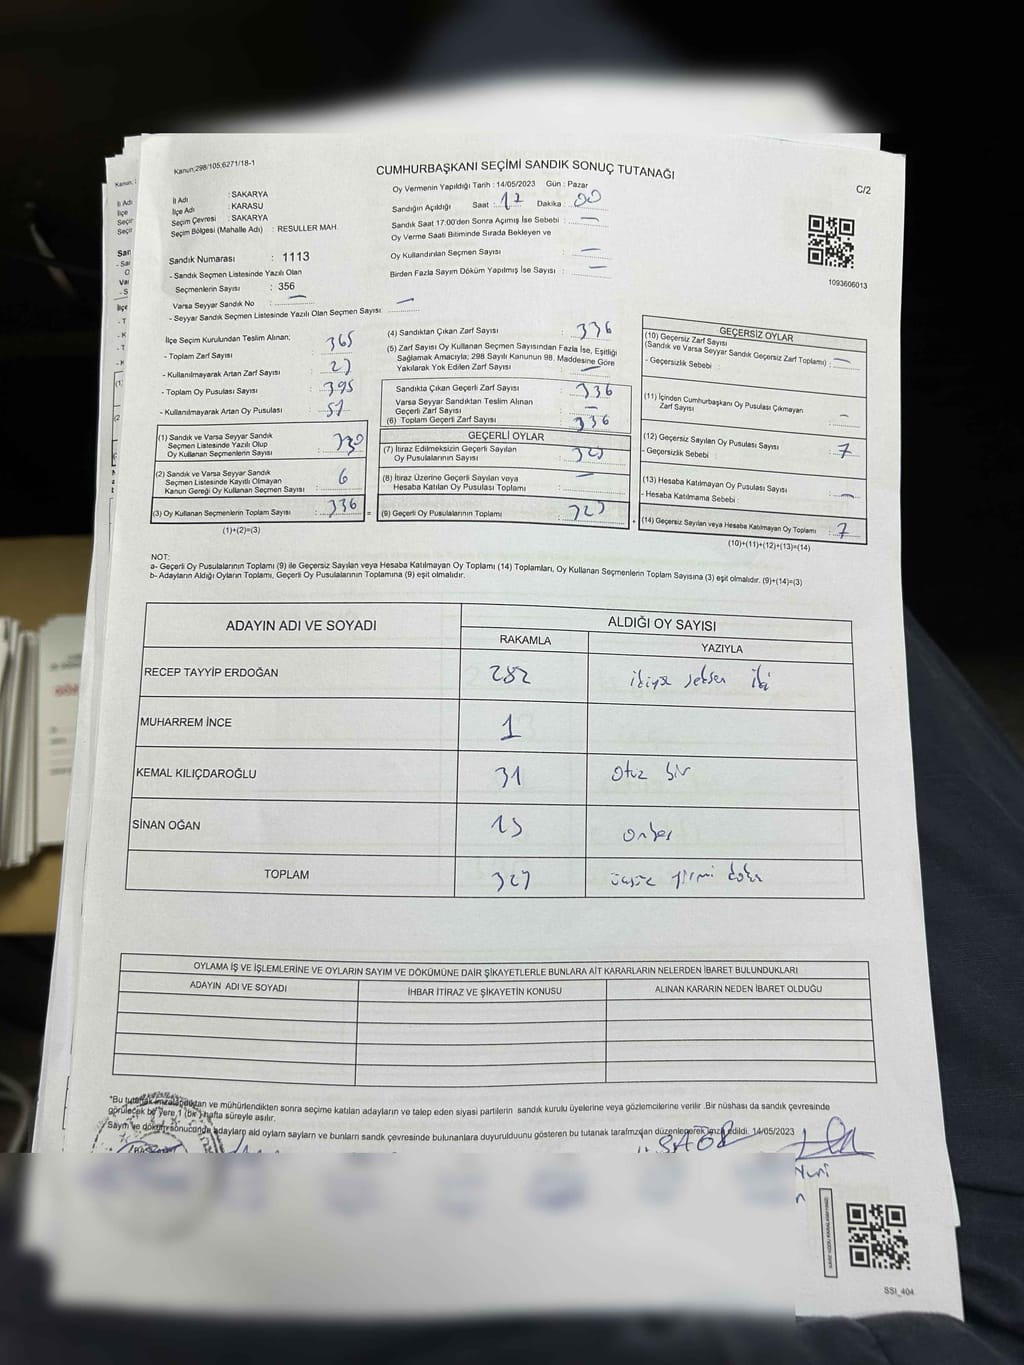 Kanun;298/105;6271/18-1
CUMHURBAŞKANI SEÇİMİ SANDIK SONUÇ TUTANAĞI
C/2
İl Adı : SAKARYA
İlçe Adı : KARASU
Seçim Çevresi : SAKARYA
Seçim Bölgesi (Mahalle Adı) : RESULLER MAH.
Oy Vermenin Yapıldığı Tarih : 14/05/2023 Gün : Pazar
Sandığın Açıldığı Saat : 17 Dakika : 00
Sandık Saat 17:00'den Sonra Açımış İse Sebebi : —
Oy Verme Saati Bitiminde Sırada Bekleyen ve
Oy Kullandırılan Seçmen Sayısı : —
Birden Fazla Sayım Döküm Yapılmış İse Sayısı : —
1093606013
Sandık Numarası : 1113
- Sandık Seçmen Listesinde Yazılı Olan
Seçmenlerin Sayısı : 356
Varsa Seyyar Sandık No : —
- Seyyar Sandık Seçmen Listesinde Yazılı Olan Seçmen Sayısı : —
İlçe Seçim Kurulundan Teslim Alınan;
- Toplam Zarf Sayısı : 365
- Kullanılmayarak Artan Zarf Sayısı
- Toplam Oy Pusulası Sayısı : 395
- Kullanılmayarak Artan Oy Pusulası
(1) Sandık ve Varsa Seyyar Sandık
Seçmen Listesinde Yazılı Olup
Oy Kullanan Seçmenlerin Sayısı : 330
(2) Sandık ve Varsa Seyyar Sandık
Seçmen Listesinde Kayıtlı Olmayan
Kanun Gereği Oy Kullanan Seçmen Sayısı : 6
(3) Oy Kullanan Seçmenlerin Toplam Sayısı : 336
(1)+(2)=(3)
(4) Sandıktan Çıkan Zarf Sayısı : 336
(5) Zarf Sayısı Oy Kullanan Seçmen Sayısından Fazla İse, Eşitliği
Sağlamak Amacıyla; 298 Sayılı Kanunun 98. Maddesine Göre
Yakılarak Yok Edilen Zarf Sayısı : —
Sandıkta Çıkan Geçerli Zarf Sayısı : 336
Varsa Seyyar Sandıktan Teslim Alınan
Geçerli Zarf Sayısı : —
(6) Toplam Geçerli Zarf Sayısı : 336
GEÇERLİ OYLAR
(7) İtiraz Edilmeksizin Geçerli Sayılan
Oy Pusulalarının Sayısı : 329
(8) İtiraz Üzerine Geçerli Sayılan veya
Hesaba Katılan Oy Pusulası Toplamı : —
(9) Geçerli Oy Pusulalarının Toplamı : 329
GEÇERSİZ OYLAR
(10) Geçersiz Zarf Sayısı
(Sandık ve Varsa Seyyar Sandık Geçersiz Zarf Toplamı) : —
- Geçersizlik Sebebi :
(11) İçinden Cumhurbaşkanı Oy Pusulası Çıkmayan
Zarf Sayısı : —
(12) Geçersiz Sayılan Oy Pusulası Sayısı : 7
- Geçersizlik Sebebi :
(13) Hesaba Katılmayan Oy Pusulası Sayısı : —
- Hesaba Katılmama Sebebi :
(14) Geçersiz Sayılan veya Hesaba Katılmayan Oy Toplamı : 7
(10)+(11)+(12)+(13)=(14)
NOT:
a- Geçerli Oy Pusulalarının Toplamı (9) ile Geçersiz Sayılan veya Hesaba Katılmayan Oy Toplamı (14) Toplamları, Oy Kullanan Seçmenlerin Toplam Sayısına (3) eşit olmalıdır. (9)+(14)=(3)
b- Adayların Aldığı Oyların Toplamı, Geçerli Oy Pusulalarının Toplamına (9) eşit olmalıdır.
ADAYIN ADI VE SOYADI
ALDIĞI OY SAYISI
RAKAMLA YAZIYLA
RECEP TAYYİP ERDOĞAN 282 ikiyüz seksen iki
MUHARREM İNCE 1
KEMAL KILIÇDAROĞLU 31 otuz bir
SİNAN OĞAN 15 onbeş
TOPLAM 329 üçyüz yirmi dokuz
OYLAMA İŞ VE İŞLEMLERİNE VE OYLARIN SAYIM VE DÖKÜMÜNE DAİR ŞİKAYETLERLE BUNLARA AİT KARARLARIN NELERDEN İBARET BULUNDUKLARI
ADAYIN ADI VE SOYADI İHBAR İTİRAZ VE ŞİKAYETİN KONUSU ALINAN KARARIN NEDEN İBARET OLDUĞU
"Bu tutanak imzalandıktan ve mühürlendikten sonra seçime katılan adayların ve talep eden siyasi partilerin sandık kurulu üyelerine veya gözlemcilerine verilir .Bir nüshası da sandık çevresinde
görülecek bir yere 1 (bir) hafta süreyle asılır.
Sayım ve döküm sonucunda adayların aid oyların sayların ve bunların sandık çevresinde bulunanlara duyurulduunu gösteren bu tutanak tarafmızdan düzenlenerek imza edildi. 14/05/2023
Nuri
SSI_404